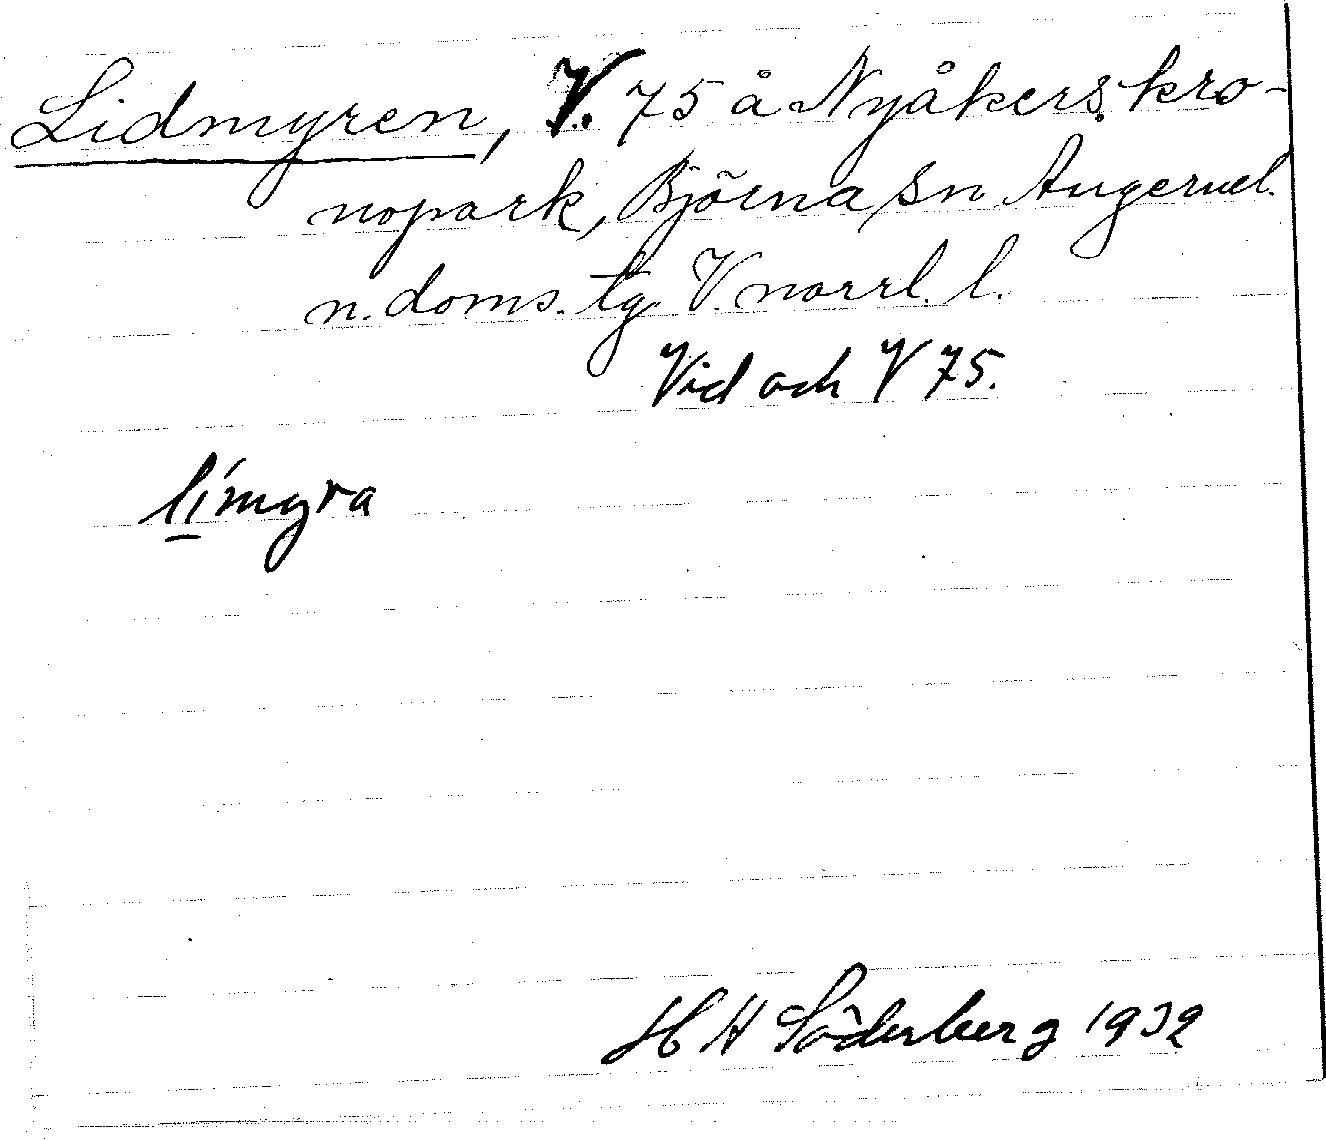 Lidmyren, V. 75 å Nyåkers kro-
nopark, Björna sn Ångermel.
n. doms. tg V. norrl. l.
Vid och V 75.
límyra
H H Söderberg 1932